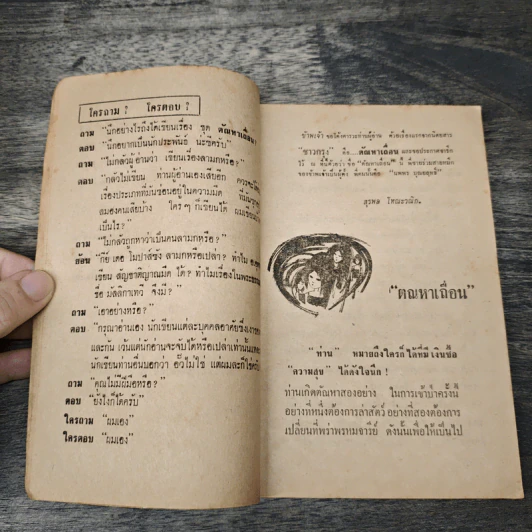 ใครถาม ? ใครตอบ ?
ถาม "นึกอย่างไรถึงได้เขียนเรื่อง ชุด ตัณหาเถื่อน?"
ตอบ "นึกอยากเป็นนักประพันธ์ น่ะซีครับ"
ถาม "ไม่กลัวผู้อ่านว่า เขียนเรื่องลามกหรือ?"
ตอบ "กลัวไม่เขียน ท่านผู้อ่านเองเสียอีก ควรจะ
เรื่องประเภทที่มันซ่อนอยู่ในความมืด
สมองคนเสียบ้าง ใคร ๆ ก็เขียนได้ ผมเขียน
เป็นไร?
ถาม "ไม่กลัวถูกหาว่าเป็นคนลามกหรือ?"
ย้อน "กีย์ เดอ โมปาสซัง ลามกหรือเปล่า? ทำไม
เขียน สัญชาติญาณมืด ได้? ทำไมเรื่องใน
ชื่อ มัลลิกาเทวี จึงมี?"
ถาม "เอาอย่างหรือ?"
ตอบ "กรุณาอ่านเอง นักเขียนแต่ละบุคคลอาศัย
และกัน เว้นแต่นักอ่านจะจับได้หรือเปล่าเท่านั้น
นักเขียนท่านอื่นบอกว่า อั๊วไม่ใช่ แต่ผมละก็ใช่
ถาม "คุณไม่มีฝีมือหรือ?"
ตอบ "ยังไงก็ได้ครับ"
ใครถาม "ผมเอง"
ใครตอบ "ผมเอง"
ข้าพเจ้า ขอให้
"ชาวกรุง" คือ...ตัณหาเถื่อน
สุรพล โทณะวณิก.
"ตัณหาเถื่อน"
"ท่าน" หมายถึงใครก็ได้ที่มีเงินซื้อ
"ความสุข" ได้ดังใจนึก!
ท่านเกิดตัณหาสองอย่าง ในการเข้าป่าครั้งนี้
อย่างที่หนึ่งต้องการล่าสัตว์ อย่างที่สองต้องการ
เปลี่ยนที่พร่าพรหมจารีย์ ดังนั้นเพื่อให้เป็นไป